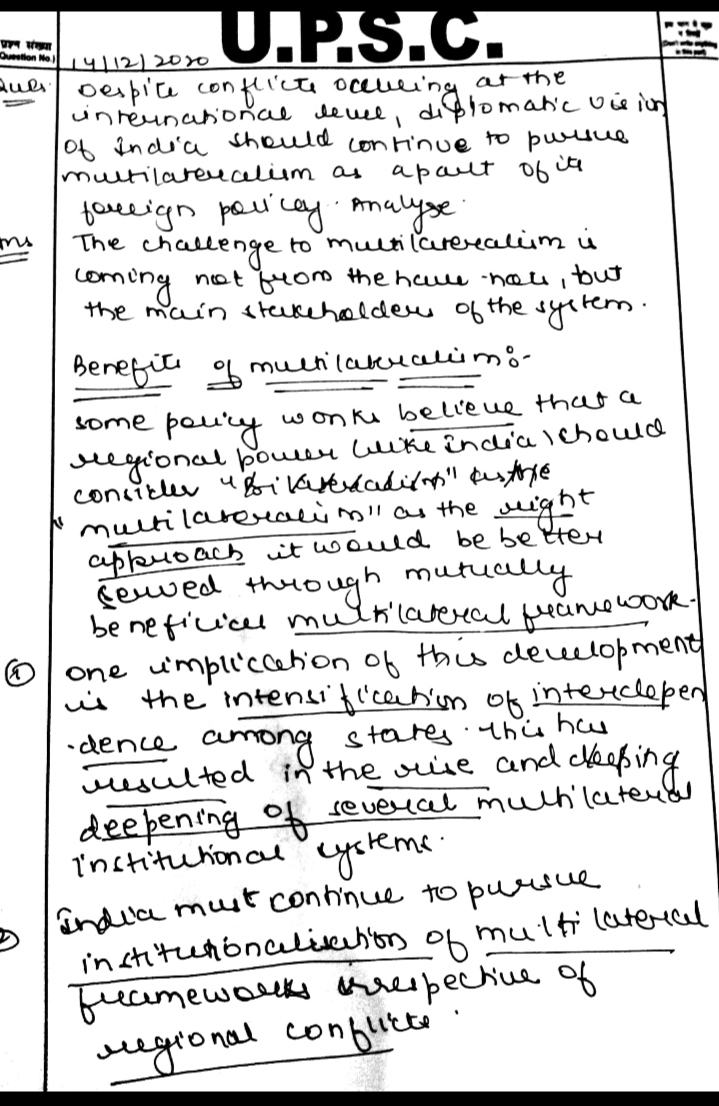 U.P.S.C.
प्रश्न संख्या
(Question No.)
14/12/2020
Ques. Despite conflicts occuring at the
international level, diplomatic vision
of India should continue to pursue
multilateralism as a part of its
foreign policy. Analyse.
Ans The challenge to multilateralism is
coming not from the have-nots, but
the main stakeholders of the system.
Benefits of multilateralism:-
some policy wonks believe that a
regional power (like India) should
consider "Bilateralism" as the
"multilateralism" as the right
approach it would be better
served through mutually
beneficial multilateral framework.
① one implication of this development
is the intensification of interdepen
-dence among states. This has
resulted in the rise and deeping
deepening of several multilateral
institutional systems.
② India must continue to pursue
institutionalisation of multilateral
frameworks irrespective of
regional conflicts.